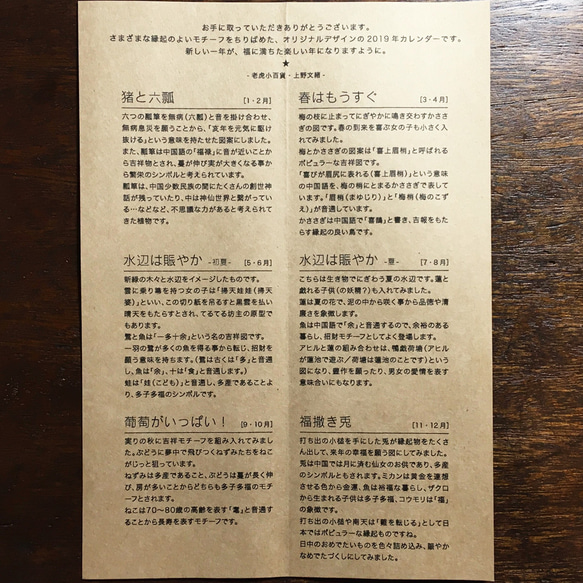 お手に取っていただきありがとうございます。
さまざまな縁起のよいモチーフをちりばめた、オリジナルデザインの2019年カレンダーです。
新しい一年が、福に満ちた楽しい年になりますように。
★
- 老虎小百貨・上野文緒 -
猪と六瓢 [1・2月]
六つの瓢箪を無病(六瓢)と音を掛け合わせ、
無病息災を願うことから、「亥年を元気に駆け
抜ける」という意味を持たせた図案にしました。
また、瓢箪は中国語の「福禄」に音が近いことか
ら吉祥物とされ、蔓が伸び実が大きくなる事か
ら繁栄のシンボルと考えられています。
瓢箪は、中国少数民族の間にたくさんの創世神
話が残っていたり、中は神仙世界と繋がってい
る…などなど、不思議な力があると考えられて
きた植物です。
春はもうすぐ [3・4月]
梅の枝に止まってにぎやかに鳴き交わすかささ
ぎの図です。春の到来を喜ぶ女の子も小さく入
れてみました。
梅とかささぎの図案は「喜上眉梢」と呼ばれる
ポピュラーな吉祥図です。
「喜びが眉尻に表れる(喜上眉梢)」という意味
の中国語を、梅の梢にとまるかささぎで表して
います。「眉梢(まゆじり)」と「梅梢(梅のこず
え)」が音通しています。
かささぎは中国語で「喜鵲」と書き、吉報をもた
らす縁起の良い鳥です。
水辺は賑やか -初夏- [5・6月]
新緑の木々と水辺をイメージしたものです。
雲に乗り幕を持つ女の子は「掃天娃娃(掃天
婆)」といい、この切り紙を吊るすと黒雲を払い
晴天をもたらすとされ、てるてる坊主の原型で
もあります。
鷺と魚は「一多十余」という名の吉祥図です。
一羽の鷺が多くの魚を得る事から転じ、招財を
願う意味を持ちます。(鷺は古くは「多」と音通
し、魚は「余」、十は「食」と音通します。)
蛙は「娃(こども)」と音通し、多産であることよ
り、多子多福のシンボルです。
水辺は賑やか -夏- [7・8月]
こちらは生き物でにぎわう夏の水辺です。蓮と
戯れる子供(の妖精?)も入れてみました。
蓮は夏の花で、泥の中から咲く事から品徳や清
廉さを象徴します。
魚は中国語で「余」と音通するので、余裕のある
暮らし、招財モチーフとしてよく登場します。
アヒルと蓮の組み合わせは、鴨戯荷塘(アヒル
が蓮池で遊ぶ/荷塘は蓮池のことです)という
図になり、豊作を願ったり、男女の愛情を表す
意味合いにもなります。
葡萄がいっぱい! [9・10月]
実りの秋に吉祥モチーフを組み入れてみました。
ぶどうに夢中で飛びつくねずみたちをねこ
がじっと狙っています。
ねずみは多産であること、ぶどうは蔓が長く伸
び、房が多いことからどちらも多子多福のモチ
ーフとされます。
ねこは70〜80歳の高齢を表す「耄」と音通す
ることから長寿を表すモチーフです。
福撒き兎 [11・12月]
打ち出の小槌を手にした兎が縁起物をたくさ
ん出して、来年の幸福を願う図にしてみました。
兎は中国では月に済む仙女のお供であり、多産
のシンボルともされます。ミカンは黄金を連想
させる色から金運、魚は裕福な暮らし、ザクロ
から生まれる子供は多子多福、コウモリは「福」
の象徴です。
打ち出の小槌や南天は「難を転じる」として日
本ではポピュラーな縁起ものですね。
日中のおめでたいものを色々詰め込み、賑やか
なめでたづくしにしてみました。